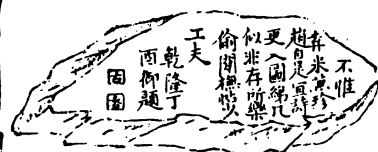 不惟
弃米兼珍
趙自是宣詩
更入圖綈几
似非存所樂
偷閒撫惜人
工夫
乾隆丁
酉御題